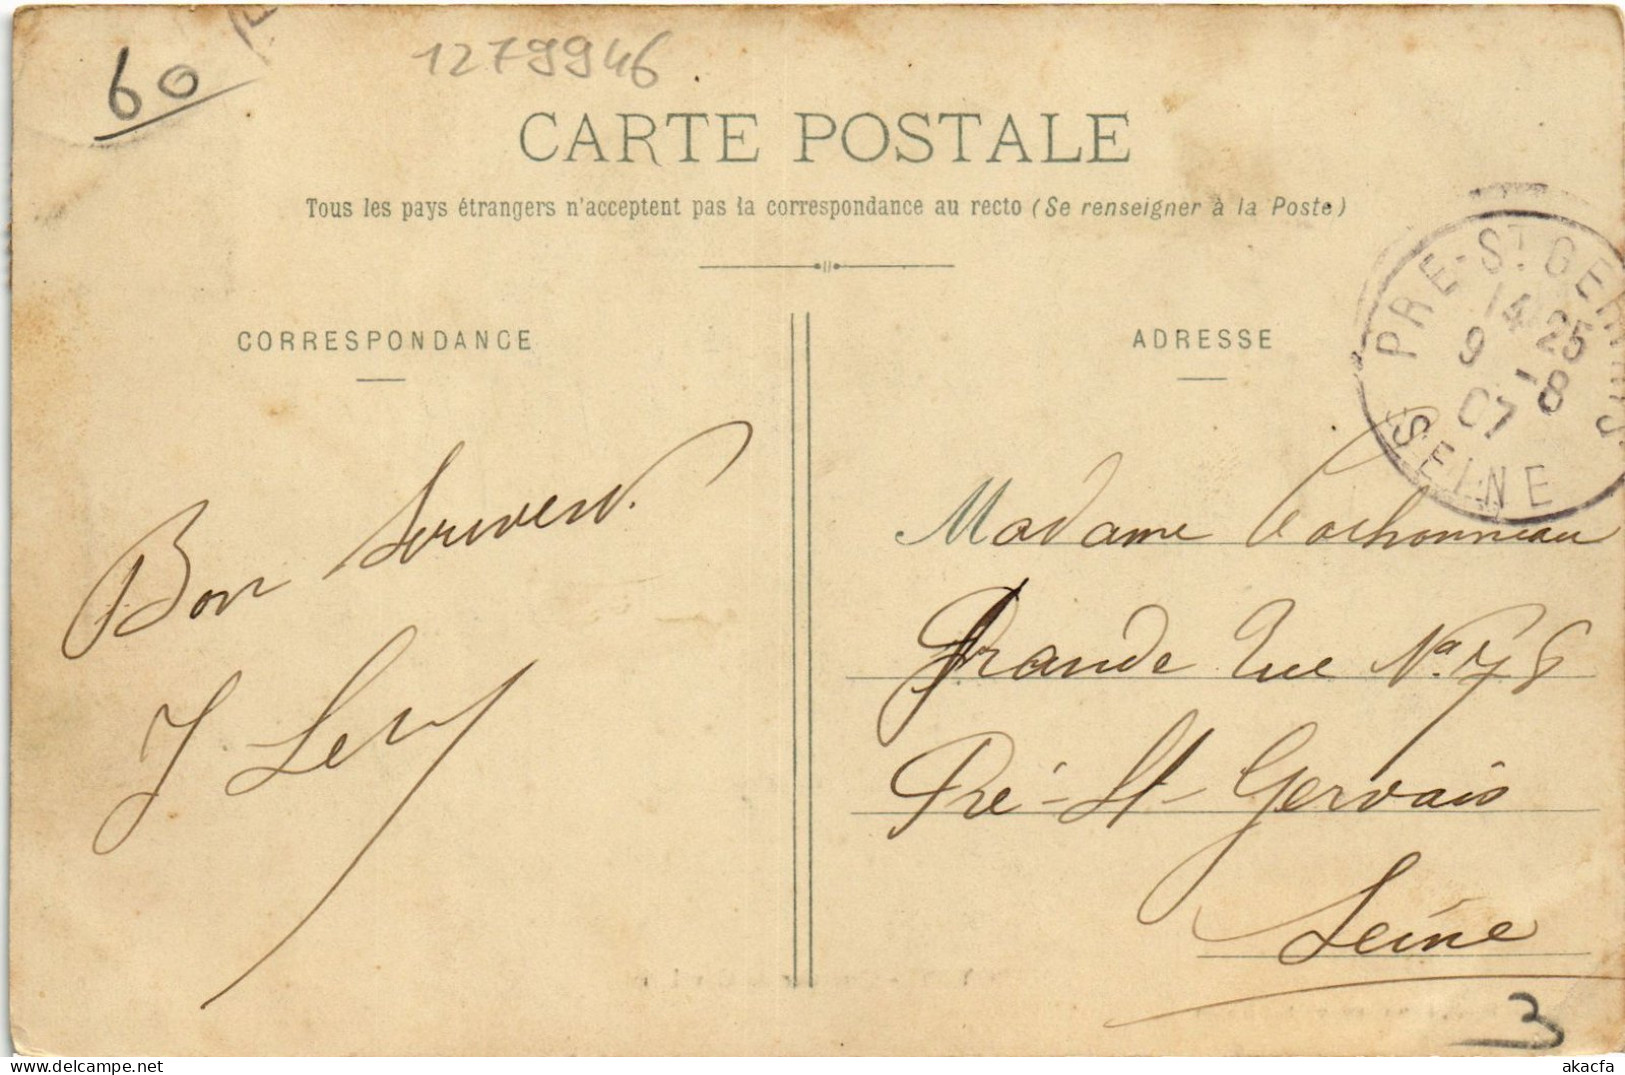 60
1279946.
CARTE POSTALE
Tous les pays étrangers n'acceptent pas la correspondance au recto (Se renseigner à la Poste)
PRE-ST GERVAIS
14 25
9 -8
07
SEINE
CORRESPONDANCE
Bon Souvenir.
J. Levy
ADRESSE
Madame Cochonneau
Grande Rue No 78
Pré-St-Gervais
Seine
3
delcampe.net
akacfa